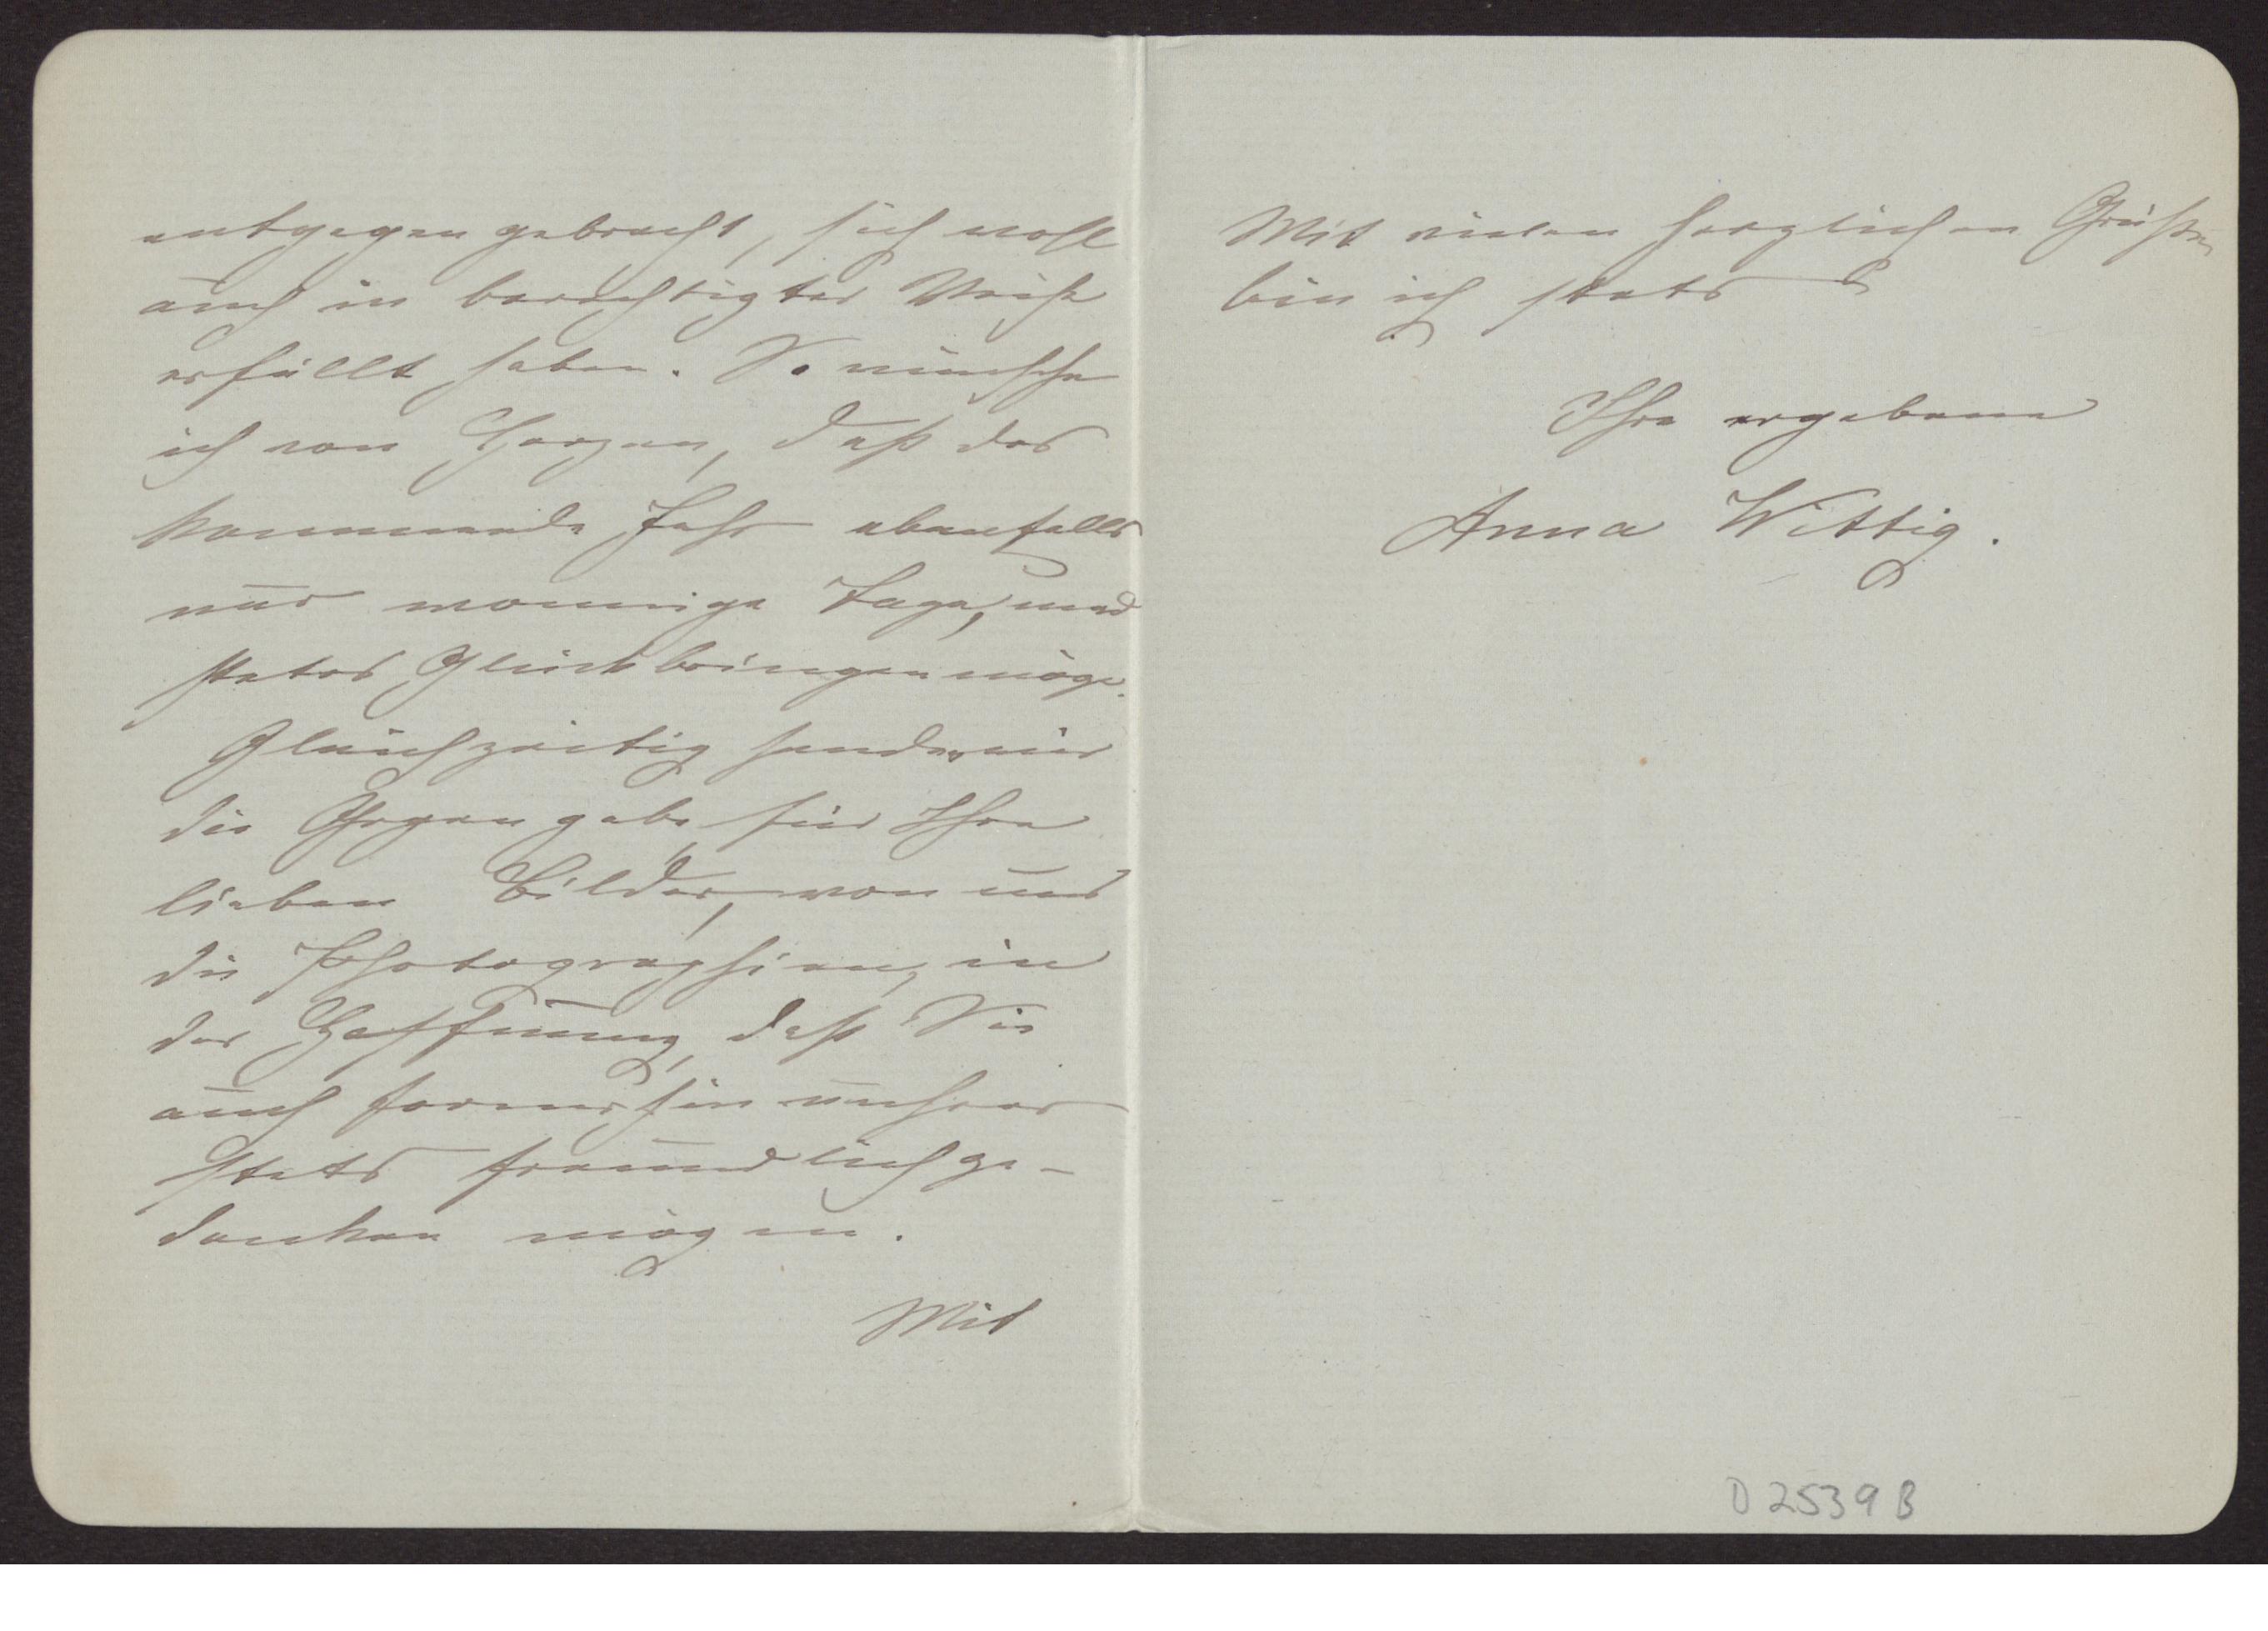 entgegen gebracht, sich wohl
auch in berechtigter Weise
erfüllt haben. So wünsche
ich von Herzen, daß das
kommende Jahr ebenfalls
nur wonnige Tage, und
stetes Glück bringen möge.
Gleichzeitig senden wir
die Gegengabe für Ihre
lieben Bilder, von uns
die Photographieen, in
der Hoffnung, daß Sie
auch fernerhin unserer
stets freundlich ge-
denken mögen.
Mit
Mit vielen herzlichen Grüßen
bin ich stets
Ihre ergebene
Anna Wittig.
D 2539 B